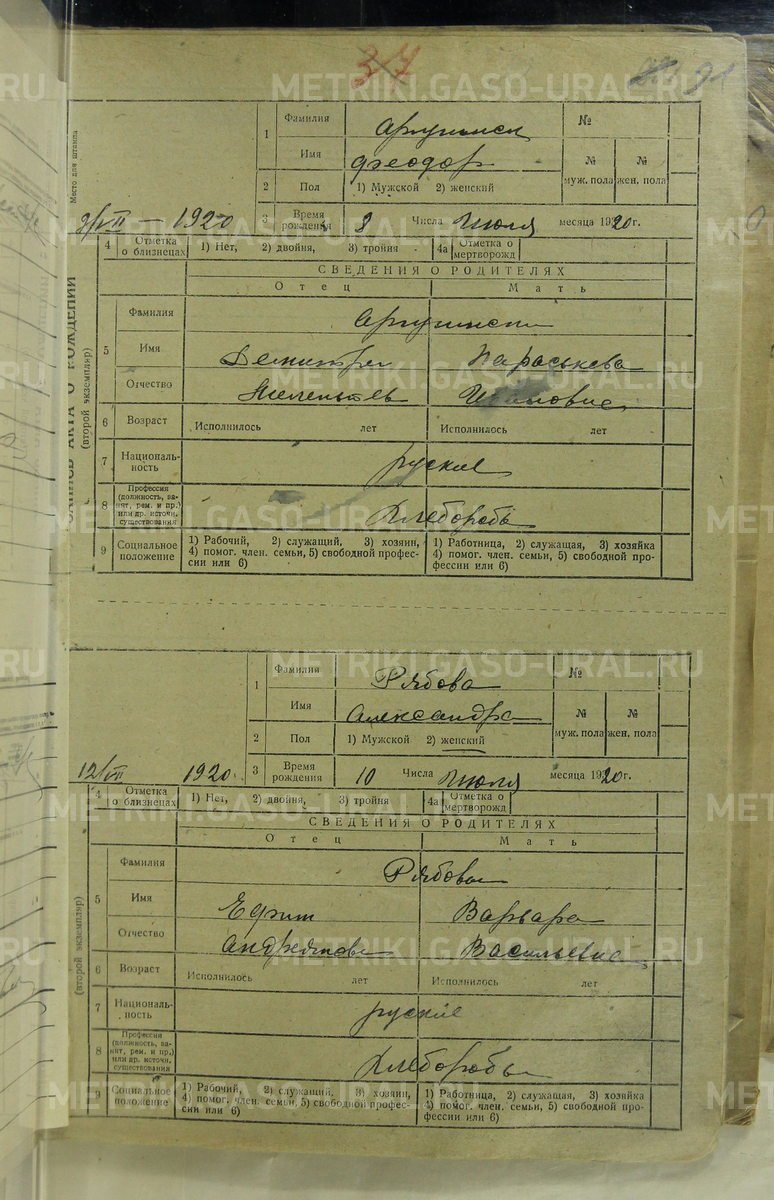 37
91
Место для штампа
ЗАПИСЬ АКТА О РОЖДЕНИИ
(второй экземпляр)
1 Фамилия №
Имя Феодор № муж. пола № жен. пола
2 Пол 1) Мужской 2) женский
9/VII — 1920 3 Время рождения 8 Числа Июля месяца 1920г.
4 Отметка о близнецах 1) Нет, 2) двойня, 3) тройня 4а Отметка о мертворожд
СВЕДЕНИЯ О РОДИТЕЛЯХ
Отец Мать
5 Фамилия
Имя Параськева
Отчество
6 Возраст Исполнилось лет Исполнилось лет
7 Националь-
ность руские
8 Профессия
(должность, за-
нят, рем. и пр.)
или др. источн.
существования Хлеборобы
9 Социальное
положение 1) Рабочий, 2) служащий, 3) хозяин,
4) помог. член. семьи, 5) свободной профес-
сии или 6)
1) Работница, 2) служащая, 3) хозяйка
4) помог. член. семьи, 5) свободной про-
фессии или 6)
(второй экземпляр)
1 Фамилия Рябова №
Имя Александра № муж. пола № жен. пола
2 Пол 1) Мужской 2) женский
12/VII 1920 3 Время рождения 10 Числа Июля месяца 1920г.
4 Отметка о близнецах 1) Нет, 2) двойня, 3) тройня 4а Отметка о мертворожд
СВЕДЕНИЯ О РОДИТЕЛЯХ
Отец Мать
5 Фамилия Рябовы
Имя Ефим Варвара
Отчество Васильевна
6 Возраст Исполнилось лет Исполнилось лет
7 Националь-
ность руские
8 Профессия
(должность, за-
нят, рем. и пр.)
или др. источн.
существования Хлеборобы
9 Социальное
положение 1) Рабочий, 2) служащий, 3) хозяин,
4) помог. член. семьи, 5) свободной профес-
сии или 6)
1) Работница, 2) служащая, 3) хозяйка
4) помог. член. семьи, 5) свободной про-
фессии или 6)
METRIKI.GASO-URAL.RU